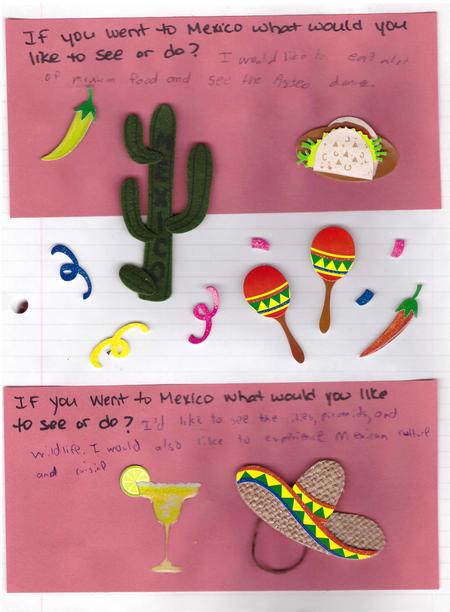 If you went to Mexico what would you
like to see or do? I would like to eat alot
of mexican food and see the Azteo dance.
MEXICO
If you went to Mexico what would you like
to see or do? I'd like to see the cities, piramids, and
wildlife. I would also like to experience Mexican culture
and